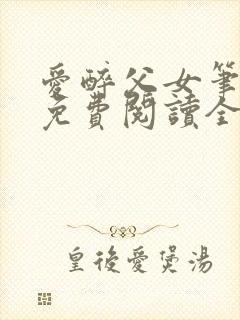 愛醉父女筆
免費閱讀全
皇後愛煲湯